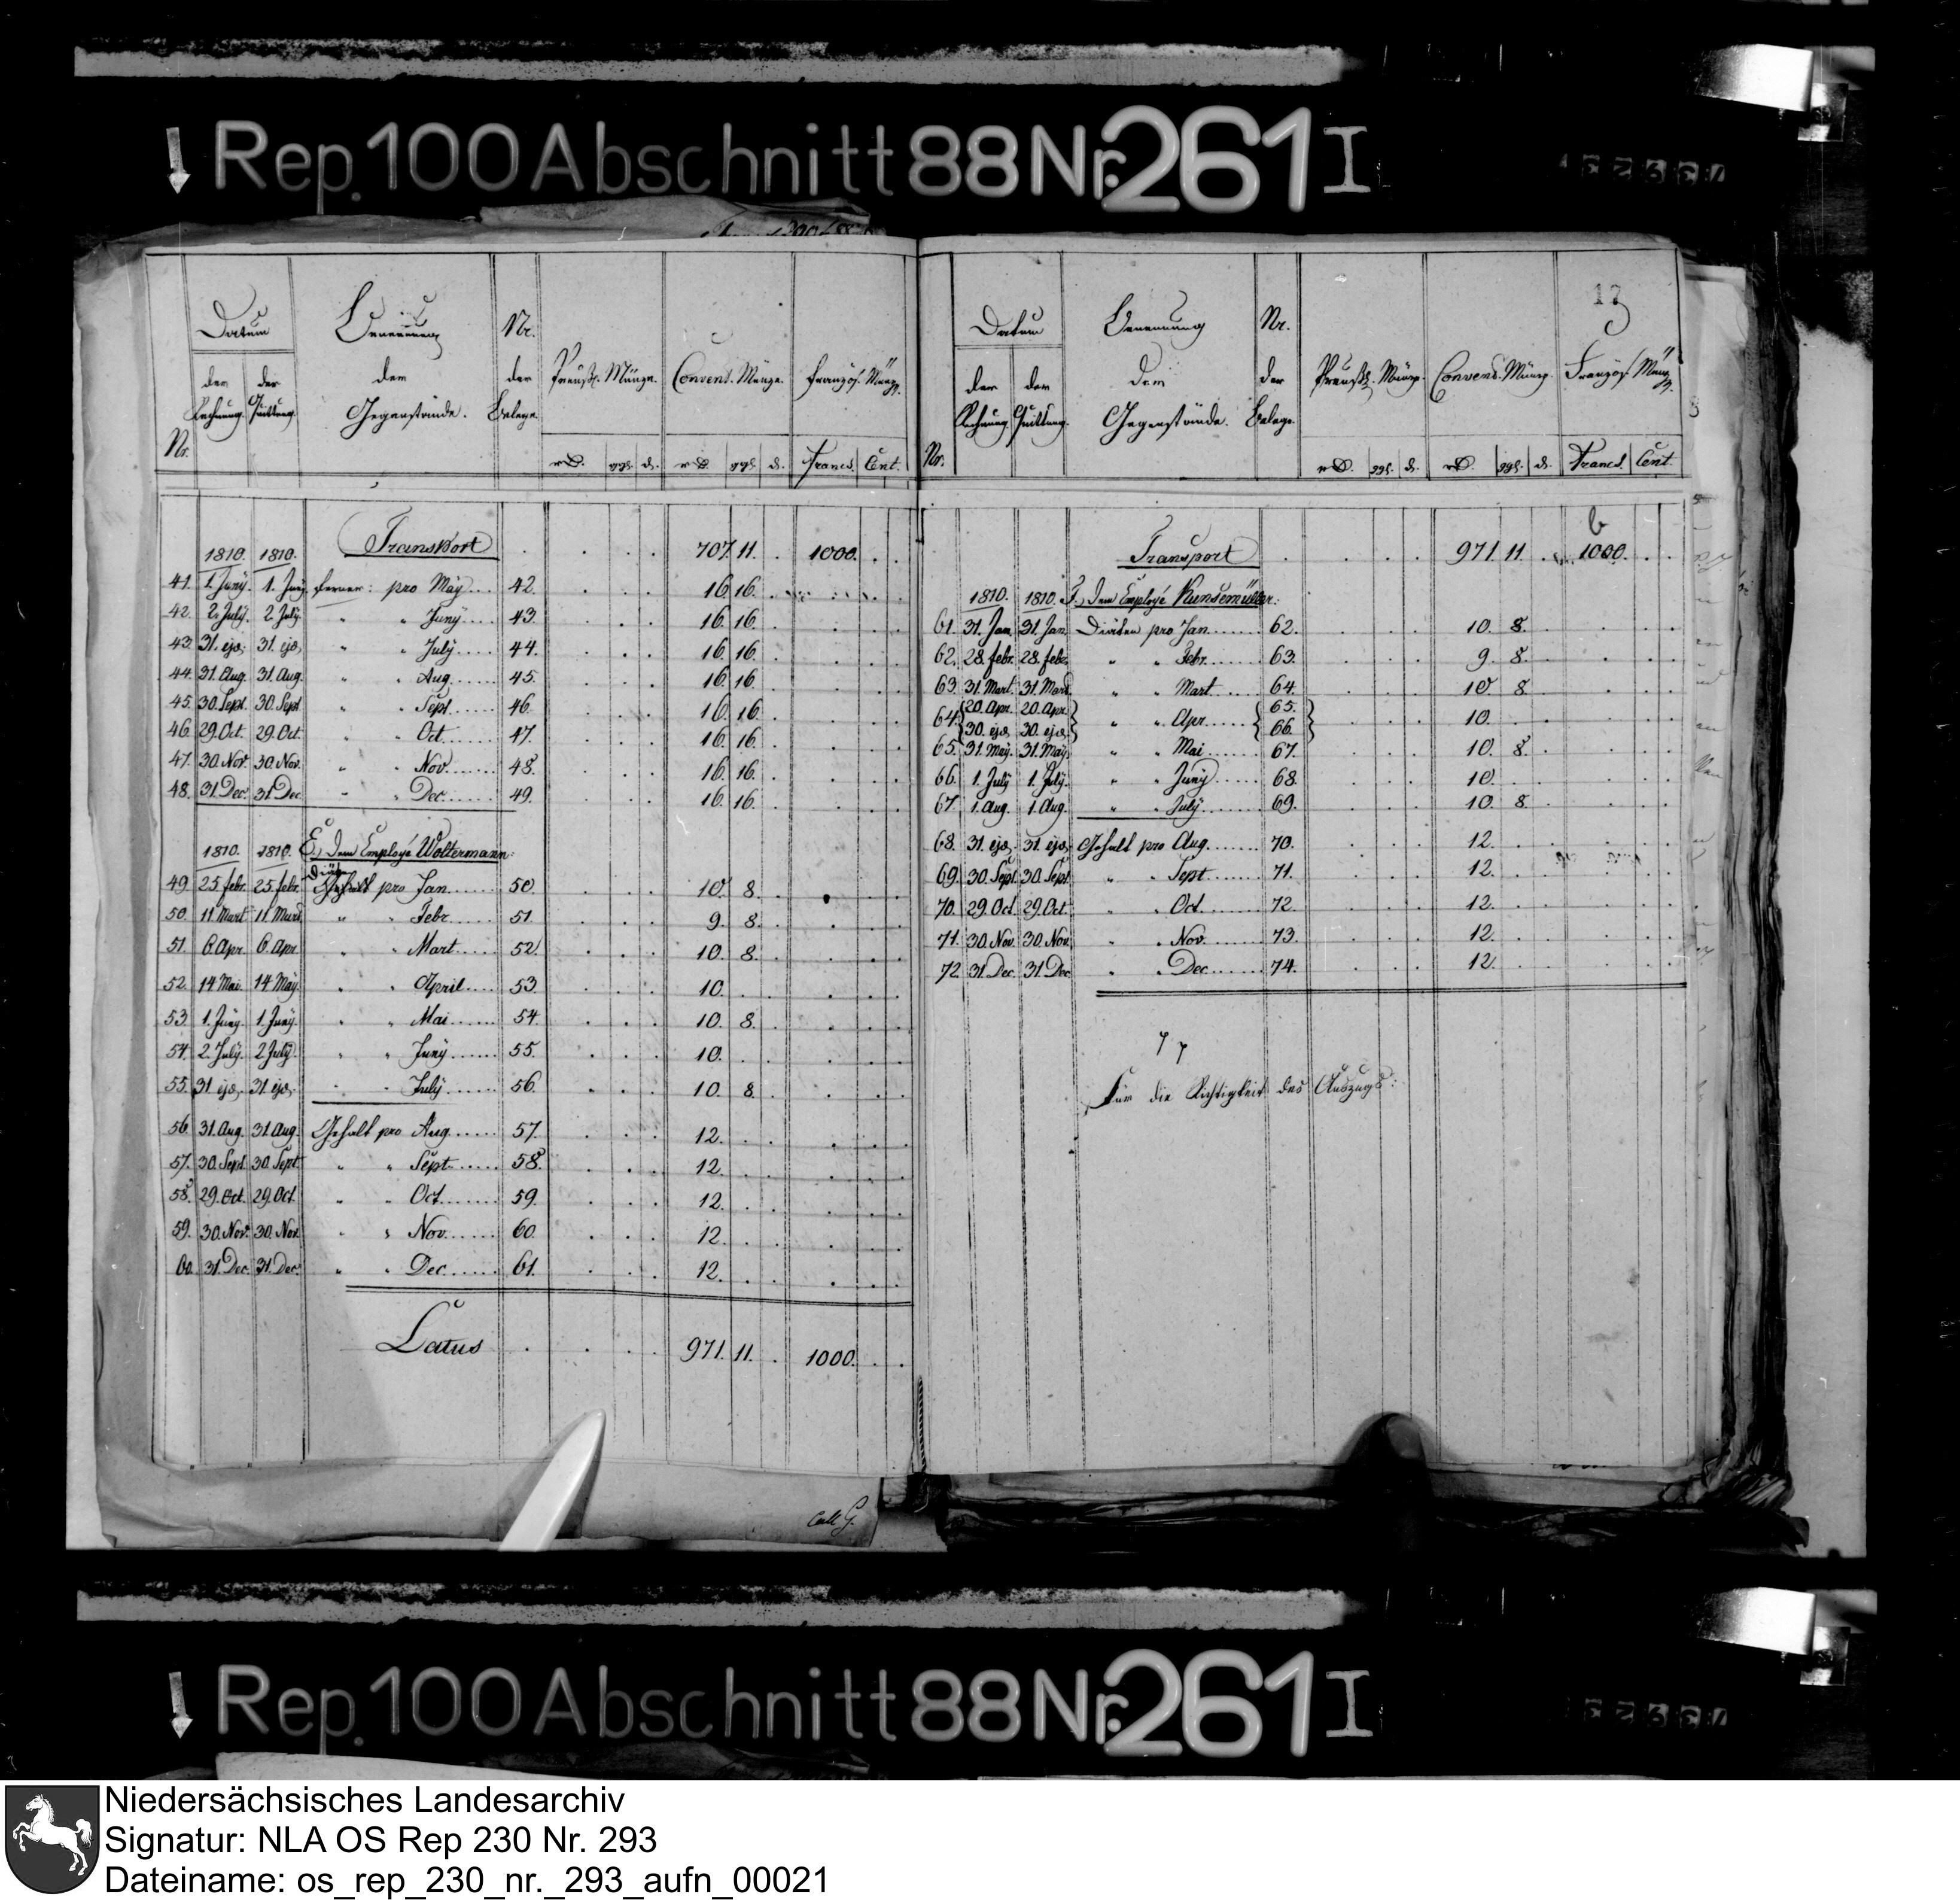 Rep. 100 Abschnitt 88 Nr. 261 I
Datum Benennung Nr.
der der der der Preußs. Münze. Convens. Münze. Französ. Münz.
Rechnung. Quittung. Gegenstände. Belege.
Nr.
rth. ggl. d. rth. ggl. d. Francs. Cent.
1810. 1810. Transport . . . . 707. 11. . 1000. . .
41. 1. Juny. 1. Juny ferner: pro May.... 42. . . . 16. 16. . . . .
42. 2. July. 2. July. " " Juny..... 43. . . . 16. 16. . . . .
43. 31. ejs. 31. ejs. " " July..... 44. . . . 16. 16. . . . .
44. 31. Aug. 31. Aug. " " Aug....... 45. . . . 16. 16. . . . .
45. 30. Sept. 30. Sept. " " Sept...... 46. . . . 16. 16. . . . .
46. 29. Oct. 29. Oct. " " Oct........ 47. . . . 16. 16. . . . .
47. 30. Nov. 30. Nov. " " Nov........ 48. . . . 16. 16. . . . .
48. 31. Dec. 31. Dec. " " Dec....... 49. . . . 16. 16. . . . .
1810. 1810. E.) dem Employé Woltermann:
Diäten
49. 25. febr. 25. febr. Gehalt pro Jan....... 50. . . . 10. 8. . . . .
50. 11. Mart. 11. Mars. " " Febr....... 51. . . . 9. 8. . . . .
51. 6. Apr. 6. Apr. " " Mart...... 52. . . . 10. 8. . . . .
52. 14. Mai. 14. May. " " April.... 53. . . . 10. . . . . .
53. 1. Juny. 1. Juny. " " Mai....... 54. . . . 10. 8. . . . .
54. 2. July. 2. July. " " Juny....... 55. . . . 10. . . . . .
55. 31. ejs. 31. ejs. " " July........ 56. . . . 10. 8. . . . .
56. 31. Aug. 31. Aug. Gehalt pro Aug...... 57. . . . 12. . . . . .
57. 30. Sept. 30. Sept. " " Sept....... 58. . . . 12. . . . . .
58. 29. Oct. 29. Oct. " " Oct........ 59. . . . 12. . . . . .
59. 30. Nov. 30. Nov. " " Nov....... 60. . . . 12. . . . . .
60. 31. Dec. 31. Dec. " " Dec....... 61. . . . 12. . . . . .
Latus . . . . 971. 11. . 1000. . .
Datum Benennung Nr.
der der der der Preußs. Münz. Convens. Münz. Französ. Münz.
Rechnung. Quittung. Gegenstände. Belege.
Nr.
rth. ggl. d. rth. ggl. d. Francs. Cent.
Transport . . . . 971. 11. . 1000. . .
1810. 1810. F.) dem Employé Kunsemüller:
61. 31. Jan. 31. Jan. Diäten pro Jan........ 62. . . . 10. 8. . . . .
62. 28. febr. 28. febr. " " Febr........ 63. . . . 9. 8. . . . .
63. 31. Mart. 31. Mars. " " Mart...... 64. . . . 10. 8. . . . .
64. 20. Apr. 20. Apr. " " Apr....... 65. . . . 10. . . . . .
30. ejs. 30. ejs. 66.
65. 31. May. 31. May. " " Mai....... 67. . . . 10. 8. . . . .
66. 1. July 1. July. " " Juny...... 68. . . . 10. . . . . .
67. 1. Aug. 1. Aug. " " July........ 69. . . . 10. 8. . . . .
68. 31. ejs. 31. ejs. Gehalt pro Aug....... 70. . . . 12. . . . . .
69. 30. Sept. 30. Sept. " " Sept....... 71. . . . 12. . . . . .
70. 29. Oct. 29. Oct. " " Oct........ 72. . . . 12. . . . . .
71. 30. Nov. 30. Nov. " " Nov........ 73. . . . 12. . . . . .
72. 31. Dec. 31. Dec. " " Dec........ 74. . . . 12. . . . . .
Für die Richtigkeit des Auszugs:
Rep. 100 Abschnitt 88 Nr. 261 I
Niedersächsisches Landesarchiv
Signatur: NLA OS Rep 230 Nr. 293
Dateiname: os_rep_230_nr._293_aufn_00021